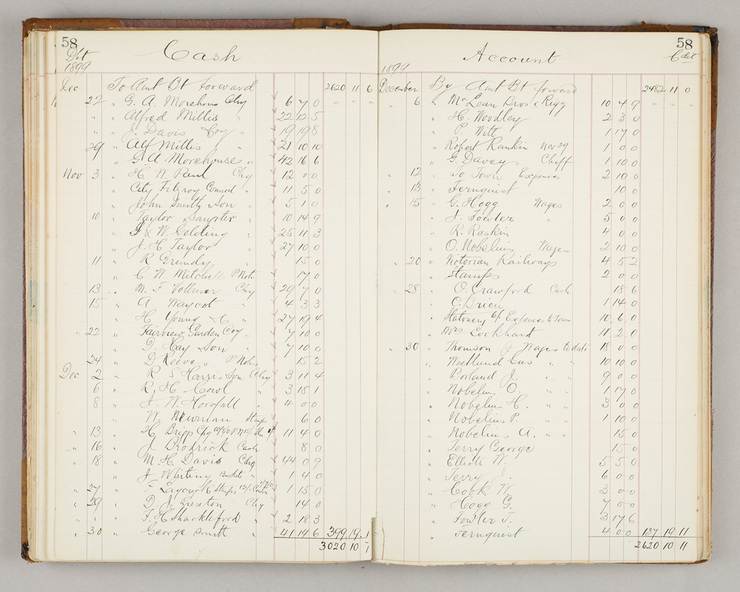 58
Cash
Dbt
1899
Dec To Amt Bt forward 2620 11 6
22 " G. A. Morehouse Chq 6 7 0
" " Alfred Millis " 22 12 5
" " J. Davis Coy " 19 19 8
29 " Alf Millis " 21 10 10
" G A Morehouse " 42 16 6
Nov 3 " H N Chq 12 0 0
" City Fitzroy " 11 5 0
John Smith Son " 5 1 0
10 " Taylor " 10 14 9
" & W. Gelding " 25 11 3
" J. H. Taylor " 27 10 0
11 " R Grundy " 15 0
" C W Mitchell P Note 17 0
13 " M. F. Vollmer Chq 29 7 0
15 " A " 4 3 3
" H Young & Co " 27 19 4
22 " Fairview Garden Coy " 7 10 0
" D Hay Son " 7 10 0
24 " D P Note 15 2
Dec 2 " R S Harris Son Chq 3 11 4
6 " R. H. " 3 15 1
8 " J W Horsfall " 4 0 0
" W. Newman Stamps 6 0
13 " H. 11 4 0
16 " J. Brodrick Cash 8 0
18 " M. H. Davis Chq 44 0 9
" J Whiting 1 4 0
27 " 1 15 0
29 " D. J. Chq 14 0
" F. H Shackleford " 2 18 3
30 " George Smith " 41 14 6 399 19 1
3020 10 7
58
Account
Cdt
1899
December By Amt Bt forward 2482 11 0
6 " McLean Bros & Rigg 10 4 9
" H. Woodley 2 3 0
" P. Witt 1 17 0
" Robert Rankin 1 0 0
" G. Davey Chaff 1 10 0
12 " To Town Expenses 2 10 0
13 " Fernquist 10 0
15 " G. Hogg Wages 2 0 0
" J. Fowler " 5 0 0
" R. Rankin 4 0 0
" O. Nobelius Wages 2 10 0
20 " Victorian Railways 4 5 2
" Stamps 2 0 0
28 " O Crawford Cash 18 6
" O. 1 14 0
" Stationery & Expenses to town 10 6 0
" Mrs Lockhard 11 2 0
30 " Thomson J Wages to date 18 0 0
" Gus " " 10 10 0
" J. " " 9 0 0
" Nobelius O. " " 1 17 0
" Nobelius H. " " 3 0 0
" Nobelius P. " 1 10 0
" Nobelius A. " " 15 0
" Terry George 15 0
" Elliott W 5 5 0
" Terry 6 0 0
" Cook W 3 0 0
" Hogg G. 7 0 0
" Fowler J. 3 17 6
" Fernquist 4 0 0 137 19 11
2620 10 11